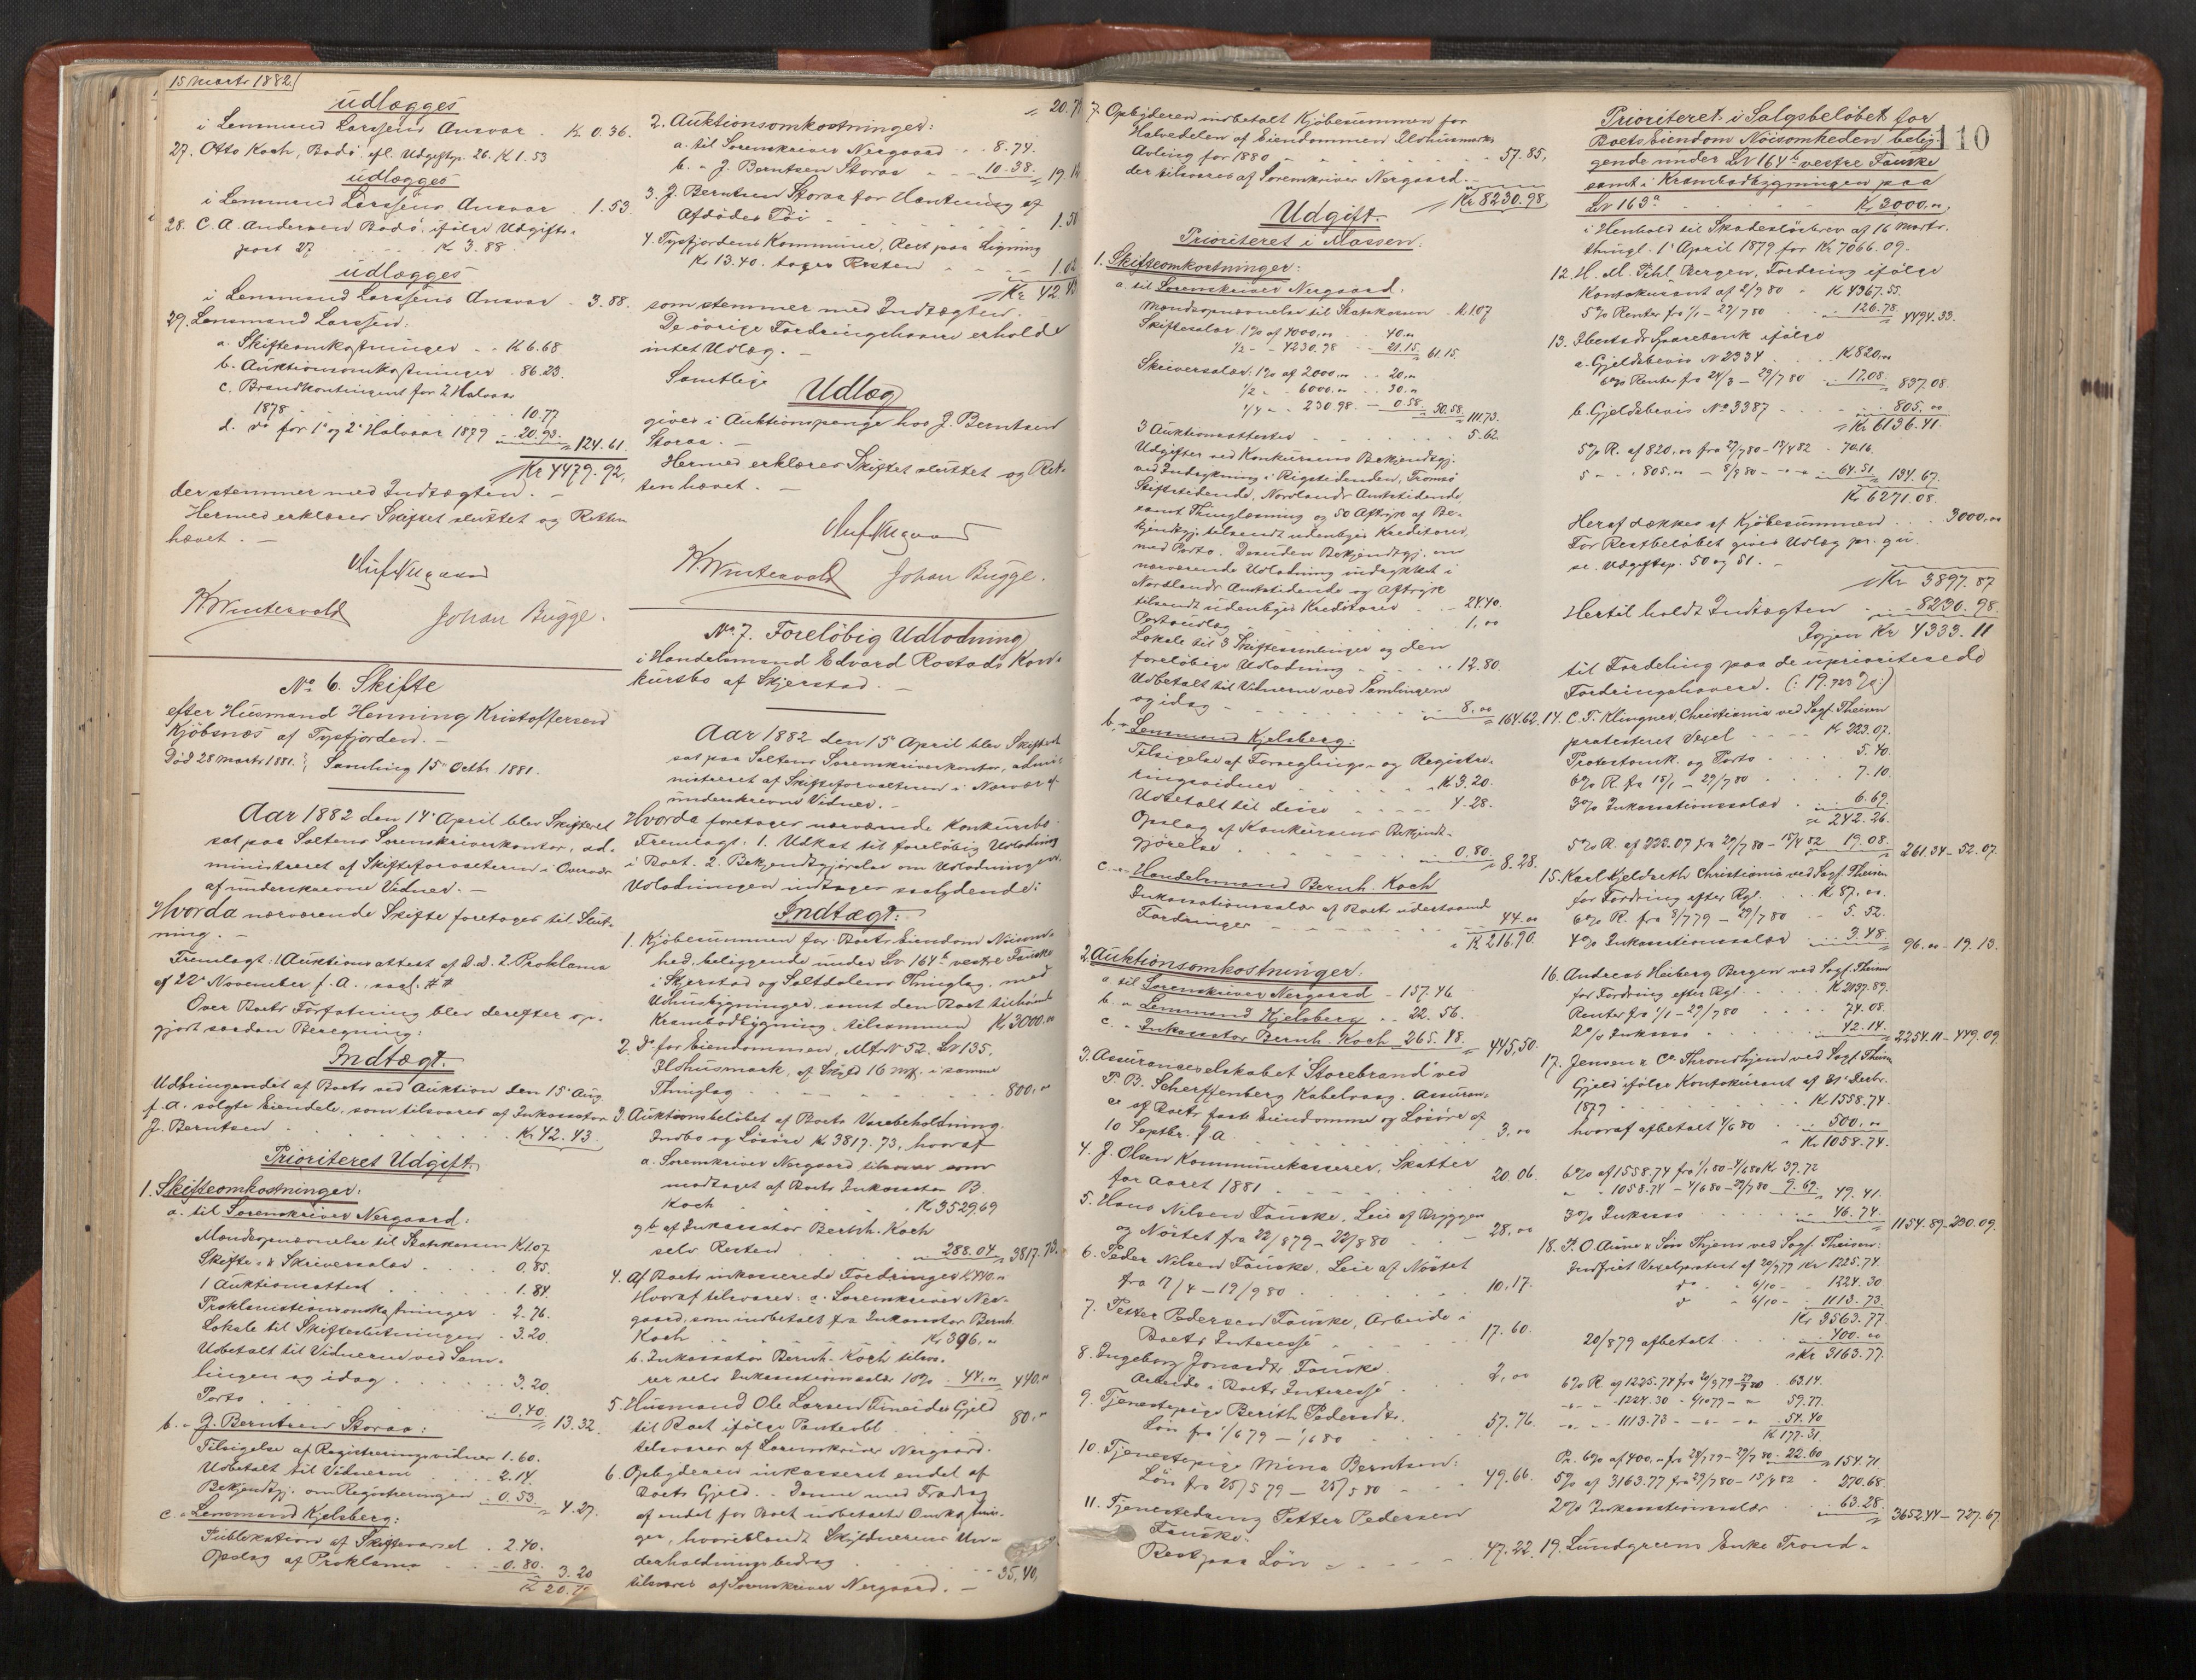 15 Marts 1882.
udlægges
i Lensmand Larssens Ansvar . K 0.36.
27. Otto Koch, Bodö efl. Udgiftsp. 26. K 1.53
udlægges
i Lensmand Larssens Ansvar . 1.53
28. C. A. Andersen Bodö, ifølge Udgifts-
post 27 . . . K 3.88
udlægges
i Lensmand Larssens Ansvar . 3.88.
29. Lensmand Larssen:
a. Skifteomkostninger . . K 6.68
b. Auktionsomkostninger . 86.23.
c. Brandkontingent for 2 Halvaar
1878 . . . 10.77
d. do for 1' og 2' Halvaar 1879 - 20.93. " 124.61.
Kr 4479.92,
der stemmer med Indtægten. -
Hermed erklæres Skiftet sluttet og Retten
hævet. -
W. Wintervold Johan Bugge.
No 6. Skifte
efter Husmand Henning Kristoffersen
Kjöbsnæs af Tysfjorden. -
Död 28 Marts 1881. Samling 15 Octb. 1881.
Aar 1882 den 14' April blev Skifteret
sat paa Saltens Sorenskriverkontor, ad-
ministreret af Skifteforvalteren i Overvær
af underskrevne Vidner. -
Hvorda nærværende Skifte foretoges til Slut-
ning. -
Fremlagt: 1 Auktionsattest af D.D. 2. Proklama
af 22' November f. A.
Over Boets Forfatning blev derefter op-
gjort saadan Beregning:
Indtægt.
Udbringendet af Boets ved Auktion den 15' Aug.
f. A. solgte Eiendele, som tilsvares af Inkassator
J. Berntsen . . . Kr 42.43.
Prioriteret Udgift
1. Skifteomkostninger:
a. til Sorenskriver Nergaard:
Mandsopnævnelse til Statskassen K 1.07
Skifte- & Skriversalær . . . 0.85.
1 Auktionsattest . . . 1.84.
Proklamationsomkostninger - 2.76.
Lokale til Skifteslutningen - 3.20.
Udbetalt til Vidnerne ved Sam-
lingen og idag . . . 3.20.
Porto . . . 0.40. " 13.32.
b. " J. Berntsen Storaa:
Tilsigelse af Registreringsvidner 1.60.
Udbetalt til Vidnerne . . . 2.14.
Bekjendtgj. om Registreringen . 0.53 " 4.27.
c " Lensmand Kjelsberg:
Publikation af Skiftevarsel . 2.40.
Opslag af Proklama . - 0.80. 3.20
K 20.79
" 20.79
2. Auktionsomkostninger:
a. til Sorenskriver Nergaard . . 8.74.
b. " J. Berntsen Storaa . . 10.38. " 19.12
3. J. Berntsen Storaa for Hentning af
Afdödes Töi . . . 1.50
4. Tysfjordens Kommune, Rest paa Ligning
Kr 13.40. tages Resten . . . 1.02
Kr 42.43
som stemmer med Indtægten.
De övrige Fordringshavere erholde
intet Udlæg. -
Samtlige
Udlæg
gives i Auktionspenge hos J. Berntsen
Storaa. -
Hermed erklæres Skiftet sluttet og Ret-
ten hævet. -
W. Wintervold Johan Bugge.
No 7. Foreløbig Udlodning
i Handelsmand Edvard Rostads Kon-
kursbo af Skjerstad. -
Aar 1882 den 15 April blev Skifteret
sat paa Saltens Sorenskriverkontor, admi-
nistreret af Skifteforvalteren i Nærvær af
underskrevne Vidner. -
Hvorda foretages nærværende Konkursbo
Fremlagt: 1. Udkast til foreløbig Udlodning
i Boet. 2. Bekjendtgjørelse om Udlodningen.
Udlodningen indtages saalydende:
Indtægt:
1. Kjöbesummen for Boets Eiendom Nöisom-
hed, beliggende under Lv 164b vestre Fauske
i Skjerstad og Saltdalens Thinglag, med
Udhusbygninger, samt den Boet tilhörende
Krambodbygning, tilsammen K 3000."
2. Do for Eiendommen, MtrN 52. Lv 135,
Ilohusmark, af Skyld 16 mk. i samme
Thinglag . . . 800."
3. Auktionsbelöbet af Boets Varebeholdning.
Indbo og Lösöre Kr 3817.73, hvoraf
a. Sorenskriver Nergaard tilsvarer som
modtaget af Boets Inkassator B.
Koch . . . K 3529.69
og b. af Inkassator Bernh. Koch
selv Resten . . . 288.04 " 3817.73.
4. Af Boets inkasserede Fordringer K 440."
Hvoraf tilsvarer: a. Sorenskriver Ner-
gaard, som indbetalt fra Inkassator Bernh.
Koch . . . Kr 396."
b. Inkassator Bernh. Koch tilsva-
rer selv Inkassationssalær 10% . 44." 440."
5. Husmand Ole Larsen Fineides Gjeld
til Boet ifölge Panteobl. . . . 80."
tilsvares af Sorenskriver Nergaard.
6. Opbyderen inkasseret endel af
Boets Gjeld. - Denne med Fradrag
af endel for Boet udbetalte Omkostnin-
ger, hvoriblandt Skyldnerens Un-
derholdningsbidrag . . . 35,40,
tilsvares af Sorenskriver Nergaard. -
110
7. Opbyderen indbetalt Kjöbesummen for
Halvedelen af Eiendommen Ilohusmarks
Avling for 1880 . . . 57.85,
der tilsvares af Sorenskriver Nergaard. -
Kr 8230.98
Udgift.
Prioriteret i Massen:
1. Skifteomkostninger:
a. til Sorenskriver Nergaard.
Mandsopnævnelse til Statskassen . K 1.07
Skiftesalær: 1% af 4000," . . 40."
1/2 - - 4230.98 - - 21.15. 61.15.
Skriversalær: 1% af 2000." . . 20."
1/2 - . 6000." . . 30."
1/4 - . 230.98. - 0.58. 50.58. 111.73.
3 Auktionsattester . . . 5.62.
Udgifter ved Konkursens Bekjendtgj.
ved Indrykning i Rigstidenden, Tromsö
Stiftstidende, Nordlands Amtstidende,
samt Thinglæsning og 50 Aftryk af Be-
kjendtgj. tilsendt udenbyes Kreditorer,
med Porto. Desuden Bekjendtgj. om
nærværende Udlodning indrykket i
Nordlands Amtstidende og Aftryk
tilsendt udenbyes Kreditorer . . 24.40.
Portoudlæg . . . 1,00
Lokale til 3 Skiftesamlinger og den
foreløbige Udlodning . . . 12.80.
Udbetalt til Vidnerne ved Samlingerne
og idag . . . 8,00 " 164.62.
b. " Lensmand Kjelsberg:
Tilsigelse af Forseglings- og Registre-
ringsvidner . . . K 3.20.
Udbetalt til disse . . . 4.28.
Opslag af Konkursens Bekjendt-
gjörelse . . . 0.80 " 8.28.
c. " Handelsmand Bernh. Koch
Inkassationssalær af Boets udestaaende
Fordringer . . . 44.00
K 216.90.
2. Auktionsomkostninger:
a. til Sorenskriver Nergaard - 157.46
b. " Lensmand Kjelsberg . . 22.56.
c. " Inkassator Bernh. Koch 265.48. " 445,50.
3. Assuranceselskabet Storebrand ved
P. B. Scherffenberg Kabelvaag. Assuran-
ce af Boets faste Eiendomme og Lösöre af
10 Septbr. f. A . . . 3,00
4. J. Olsen Kommunekasserer, Skatter
for Aaret 1881 . . . 20.06.
5. Hans Nilsen Fauske, Leie af Bryggen
og Nöstet fra 22/8 79 - 22/8 80 . . 28,00
6. Peder Nilsen Fauske, Leie af Nöstet
fra 17/4 - 19/9 80 . . . 10.17.
7. Petter Pedersen Fauske, Arbeide i
Boets Interesse . . . 17.60.
8. Ingeborg Jonasdtr. Fauske.
Arbeide i Boets Interesse . . 2,00
9. Tjenestepige Berith Pedersdtr.
Lön fra 1/6 79 - 1/6 80 . . . 57.76.
10. Tjenestepige Mina Berntsen:
Lön fra 25/5 79 - 25/5 80 . . 49.66.
11. Tjenestedreng Petter Pedersen
Fauske.
Rest paa Lön . . . 47.22.
Prioriteret i Salgsbelöbet for
Boets Eiendom Nöisomheden belig-
gende under Lv 164b vestre Fauske
samt i Krambodbygningen paa
Lv 163a . . . Kr 3000.",
i Henhold til Skadeslösbrev af 16 Marts.
thingl. 1' April 1879 for Kr 7066.09.
12. H. M. Pihl Bergen, Fordring ifölge
Kontokurant af 2/9 80 . K 4367.55.
5% Renter fra 1/1 - 29/7 80 . . 126.78. " 4494.33.
13. Ibestads Sparebank ifölge
a. Gjeldsbevis N 2334 . . . K 820,00
6% Renter fra 24/3 - 29/7 80 . . 17.08. " 837.08.
b. Gjeldsbevis No 3387 . . . 805,00
Kr 6136.41.
5% R. af 820,00 fra 29/7 80 - 15/4 82 . 70.16.
5 - - 805,00 - 8/9 80 - " - " . 64.51. " 134.67.
Kr 6271.08.
Heraf dækkes af Kjöbesummen . . . 3000,00
For Restbelöbet gives Udlæg
se Udgiftsp. 50 og 51. -
Kr 3897.87
Hertil holdt Indtægten . . . 8230.98.
Igjen Kr 4333.11
til Fordeling paa de uprioriterede
Fordringshavere. (: 19.923 % :)
14. C. F. Klingner, Christiania ved Sagf. Theisen
protesteret Vexel . . . Kr 223.07.
Protestomk. og Porto . . . 5.40.
6% R. fra 15/1 - 29/7 80 . . . 7.10.
3% Inkassationssalær . . 6.69.
242.26.
5% R. af 223.07 fra 29/7 80 - 15/4 82 19.08. 261.34 - 52.07.
15. Karl Kjeldseth Christiania ved Sagf. Theisen
for Fordring efter Rgl. . . K 87,00.
6% R. fra 8/7 79 - 29/7 80 . . 5.52.
4% Inkassationssalær . . 3.48 " 96.00 - 19.13.
16. Andreas Heiberg Bergen ved Sagf. Theisen
for Fordring efter Rgl . . . K 2137.89.
Renter fra 1/1 - 29/7 80 . . . 74.08.
2% Inkasso . . . 42.14. " 2254.11 - 449.09.
17. Jensen & Co Throndhjem ved Sagf. Theisen
Gjeld ifölge Kontokurant af 31' Decbr.
1879 . . . Kr 1558.74.
hvoraf afbetalt 4/6 80 . . 500,00
Kr 1058.74.
6% af 1558.74 fra 1/1 80 - 4/6 80 Kr 39.72
" . 1058.74 - 4/6 80 - 29/7 80 9.69. " 49.41.
3% Inkasso . . . 46.74.
" 1154.89 - 230.09.
18. F. O. Aune & Sön Thjem ved Sagf. Theisen:
Indfriet Vexelprotest af 20/9 79 Kr 1225.74.
do " 6/10 - . 1224.30
do " 6/10 - . 1113.73.
Kr 3563.77.
20/8 79 afbetalt . . . 400.00
Kr 3163.77.
6% R. af 1225.74 fra 20/9 79 - 29/7 80 . 63.14.
" . 1224.30 - 6/10 79 - " 59.77.
" . 1113.73 - " - " 54.40
K 177.31.
R. 6% af 400,00 fra 28/7 79 - 29/7 80 . 22.60 " 154.71.
5% af 3163.77 fra 29/7 80 - 15/4 82 . 270.68.
2% Inkassationssalær . . . 63.28. " 3652.44 - 727.67.
19. Lundgreens Enke Trond-